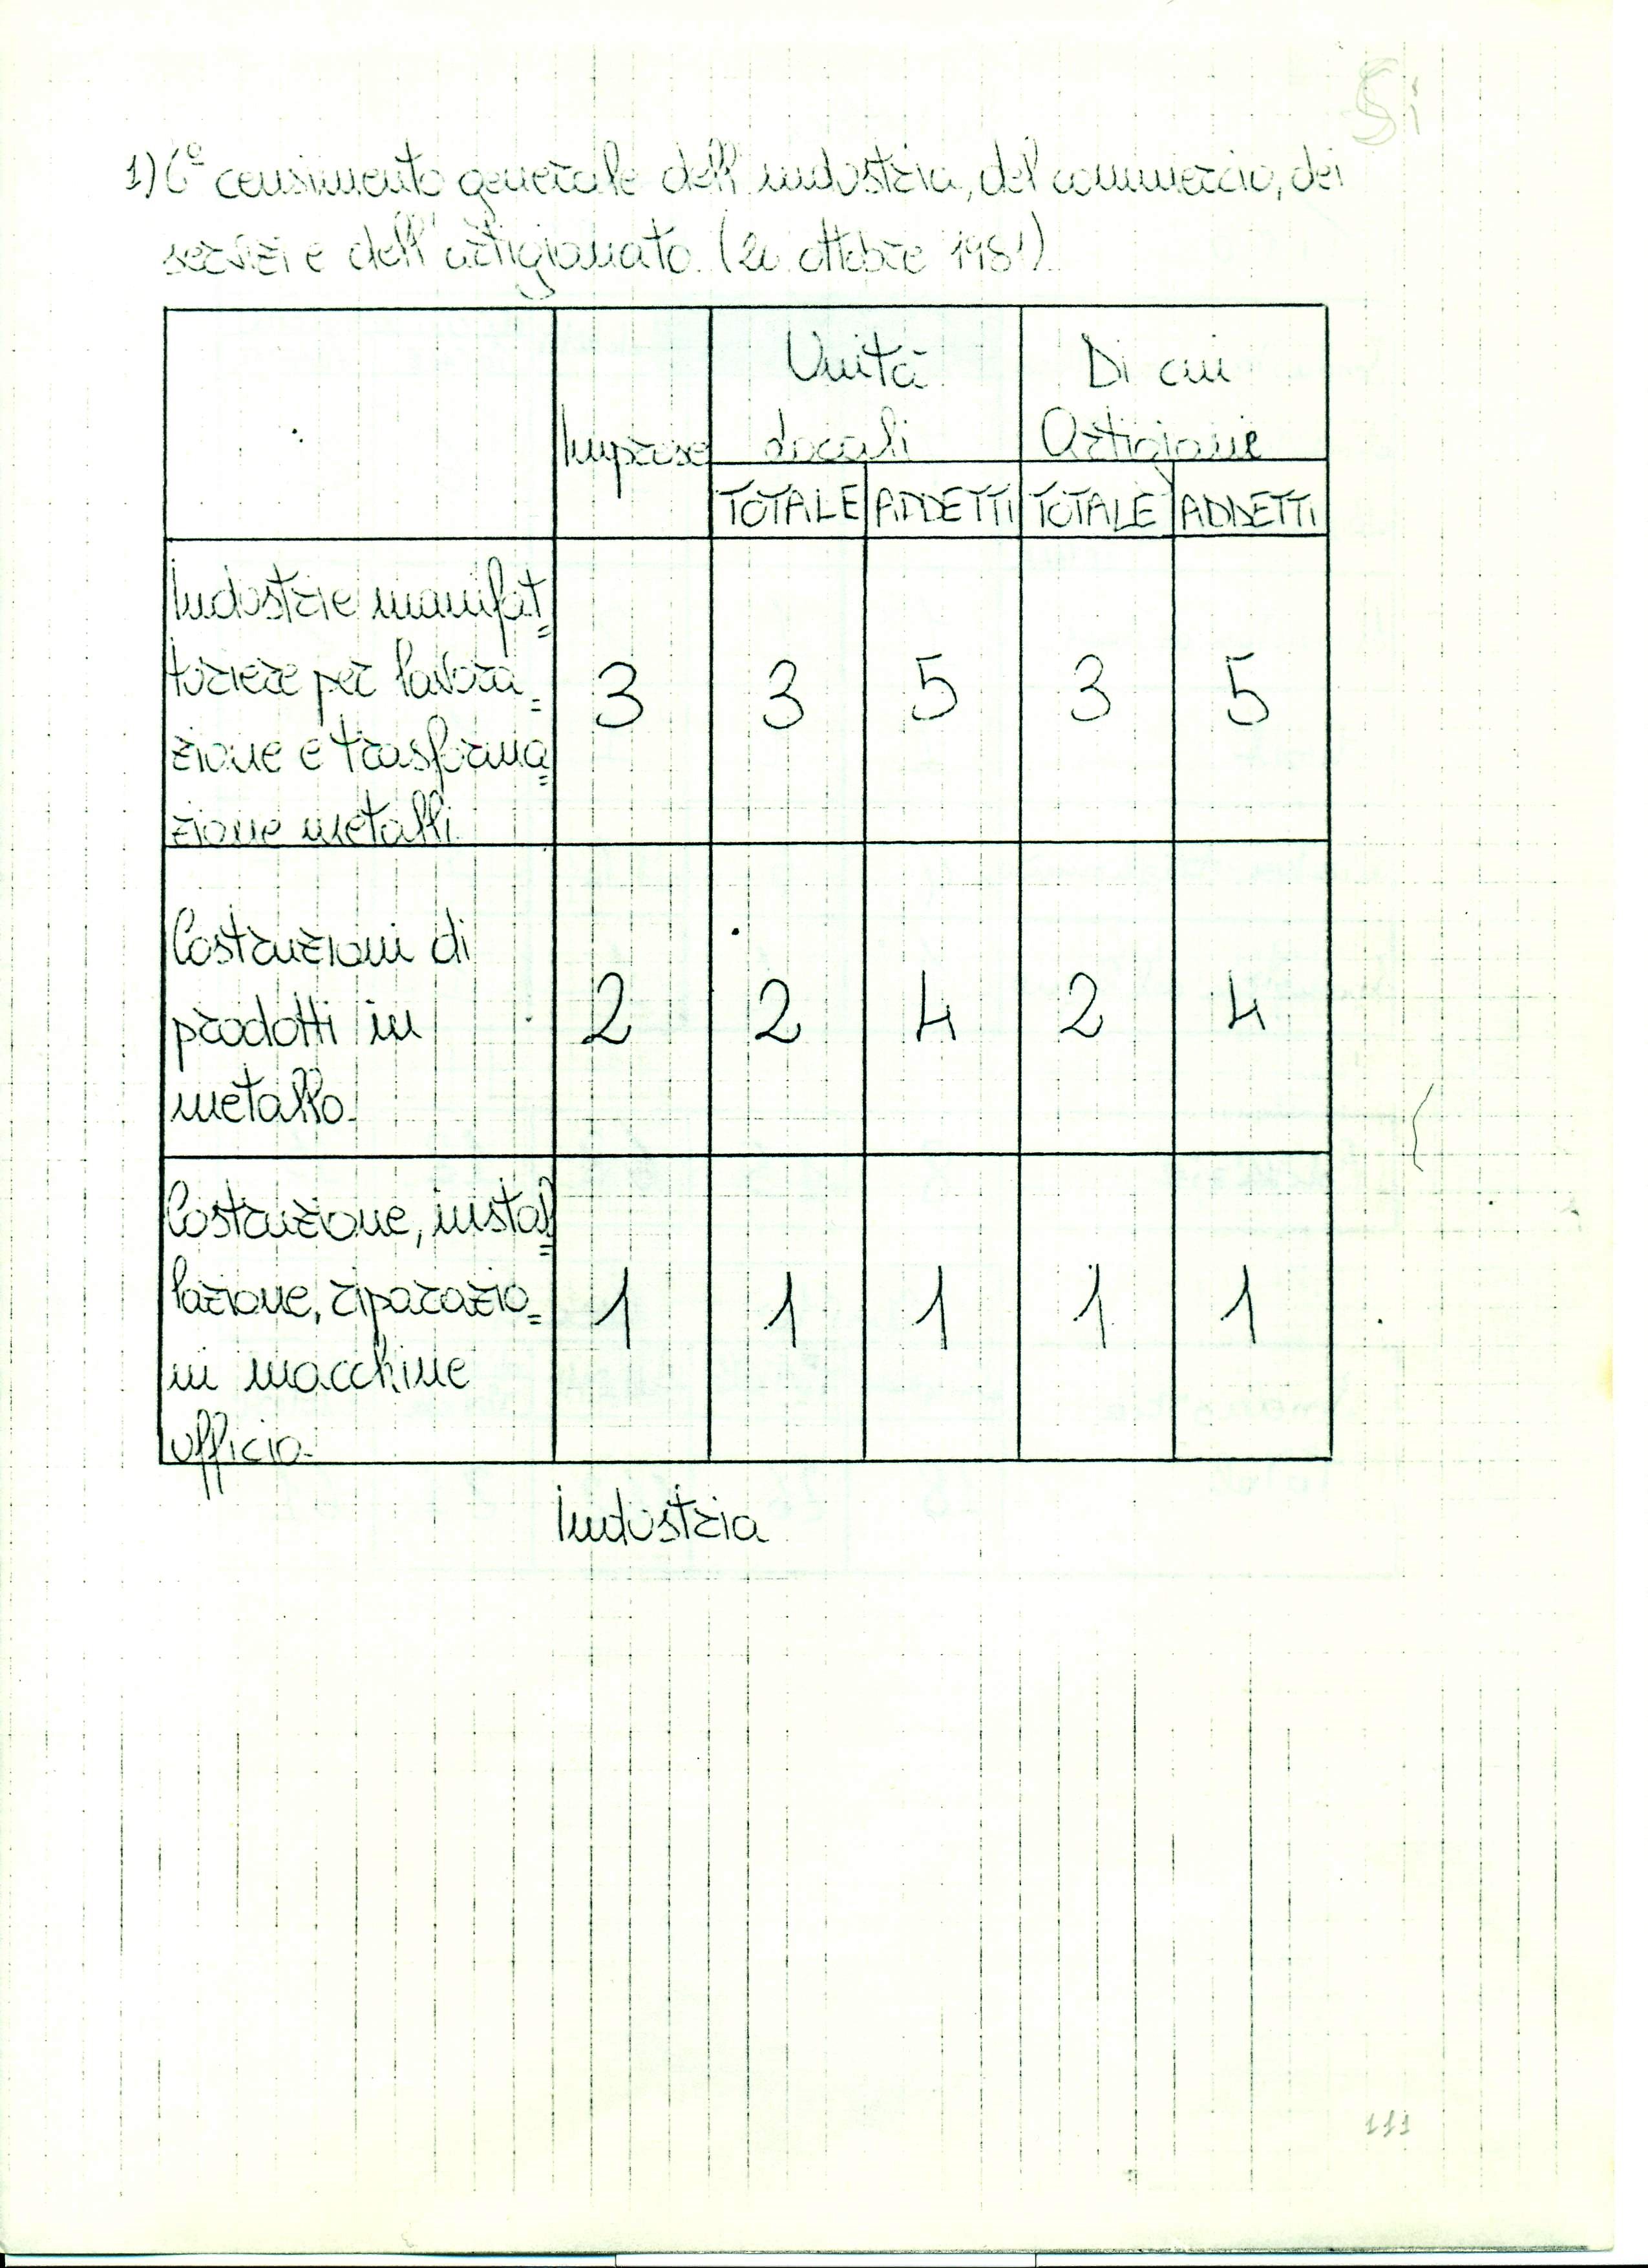 Si
1) 6° censimento generale dell'industria, del commercio, dei
servizi e dell'artigianato. (26 ottobre 1981).
Unità Di cui
Imprese Locali Artigiane
TOTALE ADDETTI TOTALE ADDETTI
Industrie manifat=
turiere per lavora=
zione e trasforma=
zione metalli.
3 3 5 3 5
Costruzioni di
prodotti in
metallo.
2 2 4 2 4
Costruzione, instal=
lazione, riparazio=
ni macchine
ufficio.
1 1 1 1 1
Industria
111